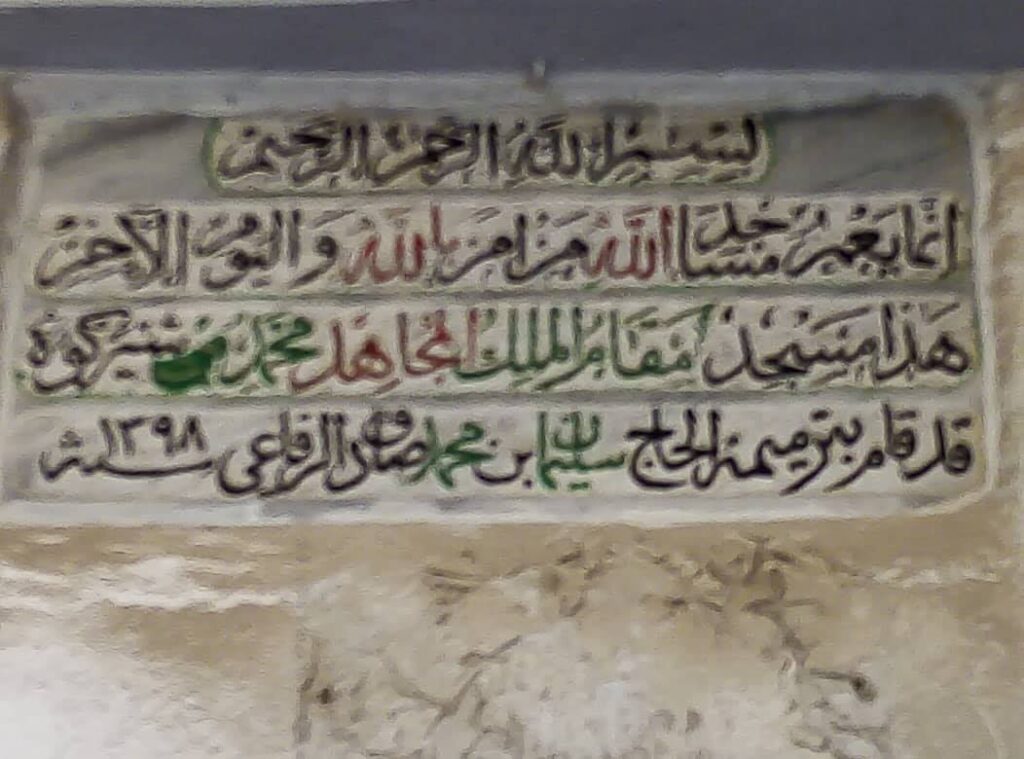 بسم الله الرحمن الرحيم
انما يعمر مساجد الله من امن بالله واليوم الآخر
هذا مسجد مقام الملك المجاهد محمد شيركوه
قد قام بترميمه الحاج سليمان بن محمد صادق الرفاعي سنة ١٣٩٨